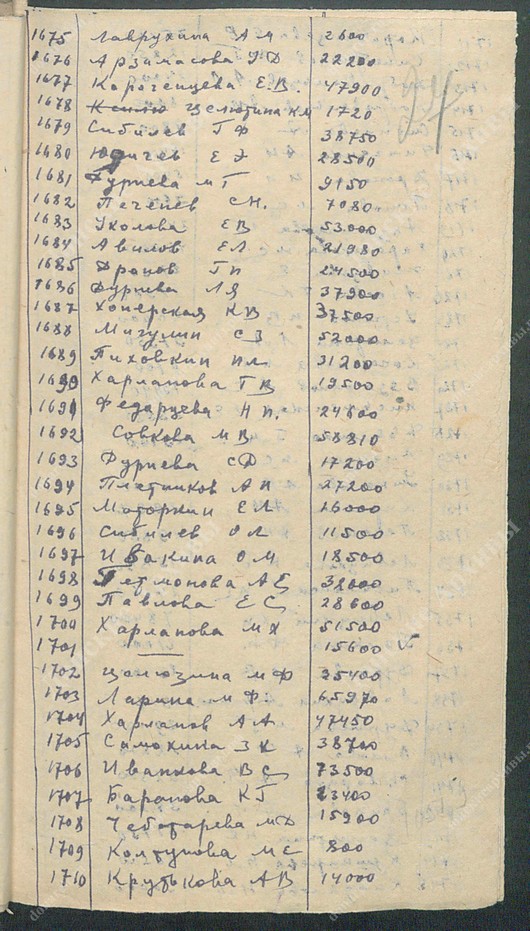 1675 Лаврухина А М 2600
1676 Арзамасова У Ф 22200
1677 Карагенцева Е.В. 47900
1678 Целютина К М 1720
1679 Сибилев Т Ф 38750
1680 Юдичев Е Э 28500
1681 Фурнева М Г 9150
1682 Печенев С Н. 7080
1683 Уколова Е В 53000
1684 Авилов Е Л 21980
1685 Дронов Т П 24500
1686 Фурнева Л Я 37900
1687 Хоперская К В 37500
1688 Мигулин С З 52000
1689 Пиховкин 31200
1690 Харланова Т В 19500
1691 Федарцева Н П. 24800
1692 Совкова М В 58810
1693 Фурнева С Ф 17200
1694 Плетников А Н 27200
1695 Моторкин Е Л 16000
1696 Сибилев О Л 11500
1697 Ивакина О М 18500
1698 А Е 32000
1699 Павлова Е С 28600
1700 Харланова М Х 51500
1701 — 15600
1702 Целюзина М Ф 25400
1703 Ларина М Ф. 65970
1704 Харланов А А 47450
1705 Самохина З К 38700
1706 Иванкова В С 73500
1707 Баранова К Г 23400
1708 Чеботарева М Д 15900
1709 Колтунова М Е 800
1710 Крутькова А В 14000